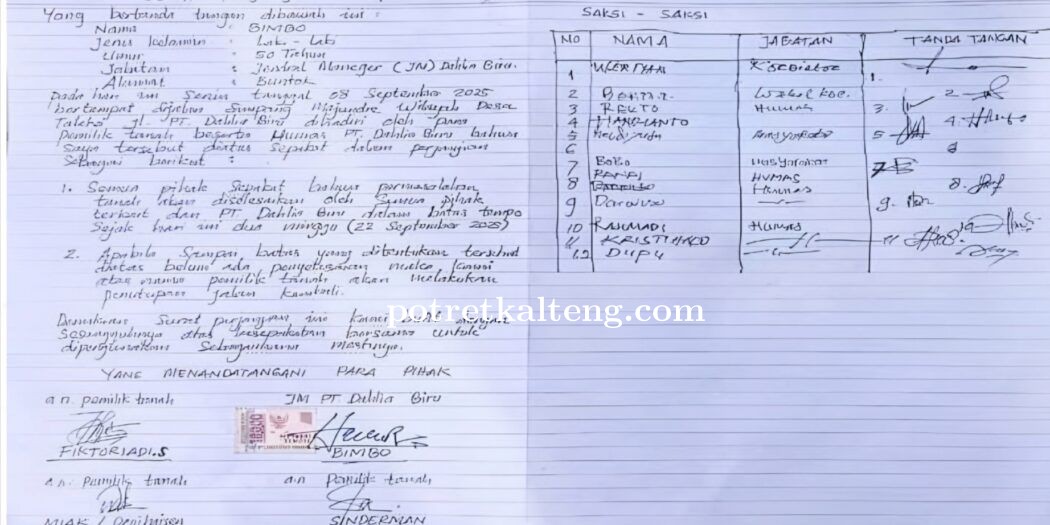 Yang bertanda tangan dibawah ini :
Nama : BIMBO
Jenis kelamin : Laki - Laki
Umur : 50 Tahun
Jabatan : Jendral Maneger (JM) Dahlia Biru.
Alamat : Buntok
Pada hari ini Senin tanggal 08 September 2025
bertempat dijalan Simpang Wilayah Desa
Taleko Jl. PT. Dahlia Biru dihadiri oleh para
Pemilik tanah beserta Humas PT. Dahlia Biru bahwa
saya tersebut diatas sepakat dalam perjanjian
Sebagai berikut :
1. Semua pihak sepakat bahwa permasalahan
tanah akan diselesaikan oleh semua pihak
terkait dan PT Dahlia Biru dalam batas tempo
Sejak hari ini dua minggu (22 September 2025)
2. Apabila Sampai batas yang ditentukan tersebut
diatas belum ada penyelesaian maka kami
atas nama pemilik tanah akan melakukan
penutupan jalan kembali.
Demikian Surat perjanjian ini kami buat dengan
Sesungguhnya atas kesepakatan bersama untuk
dipergunakan Sebagaimana mestinya.
YANG MENANDATANGANI PARA PIHAK
a.n. pemilik tanah JM PT. Dahlia Biru
10000
FIKTORIADI.S BIMBO
a.n. pemilik tanah a.n pemilik tanah
MIAK / SINDERMAN
SAKSI - SAKSI
NO NAMA JABATAN TANDA TANGAN
1 1.
2 2.
3 RECTO HUMAS 3.
4 HANGIANTO 4.
5 5
6 6
7 BOBO Masyarakat 7
8 HUMAS 8.
9 Humas 9.
10 RAHMADI HUMAS 10
11 KRISTIANTO 11
12 DUPU
potretkalteng.com